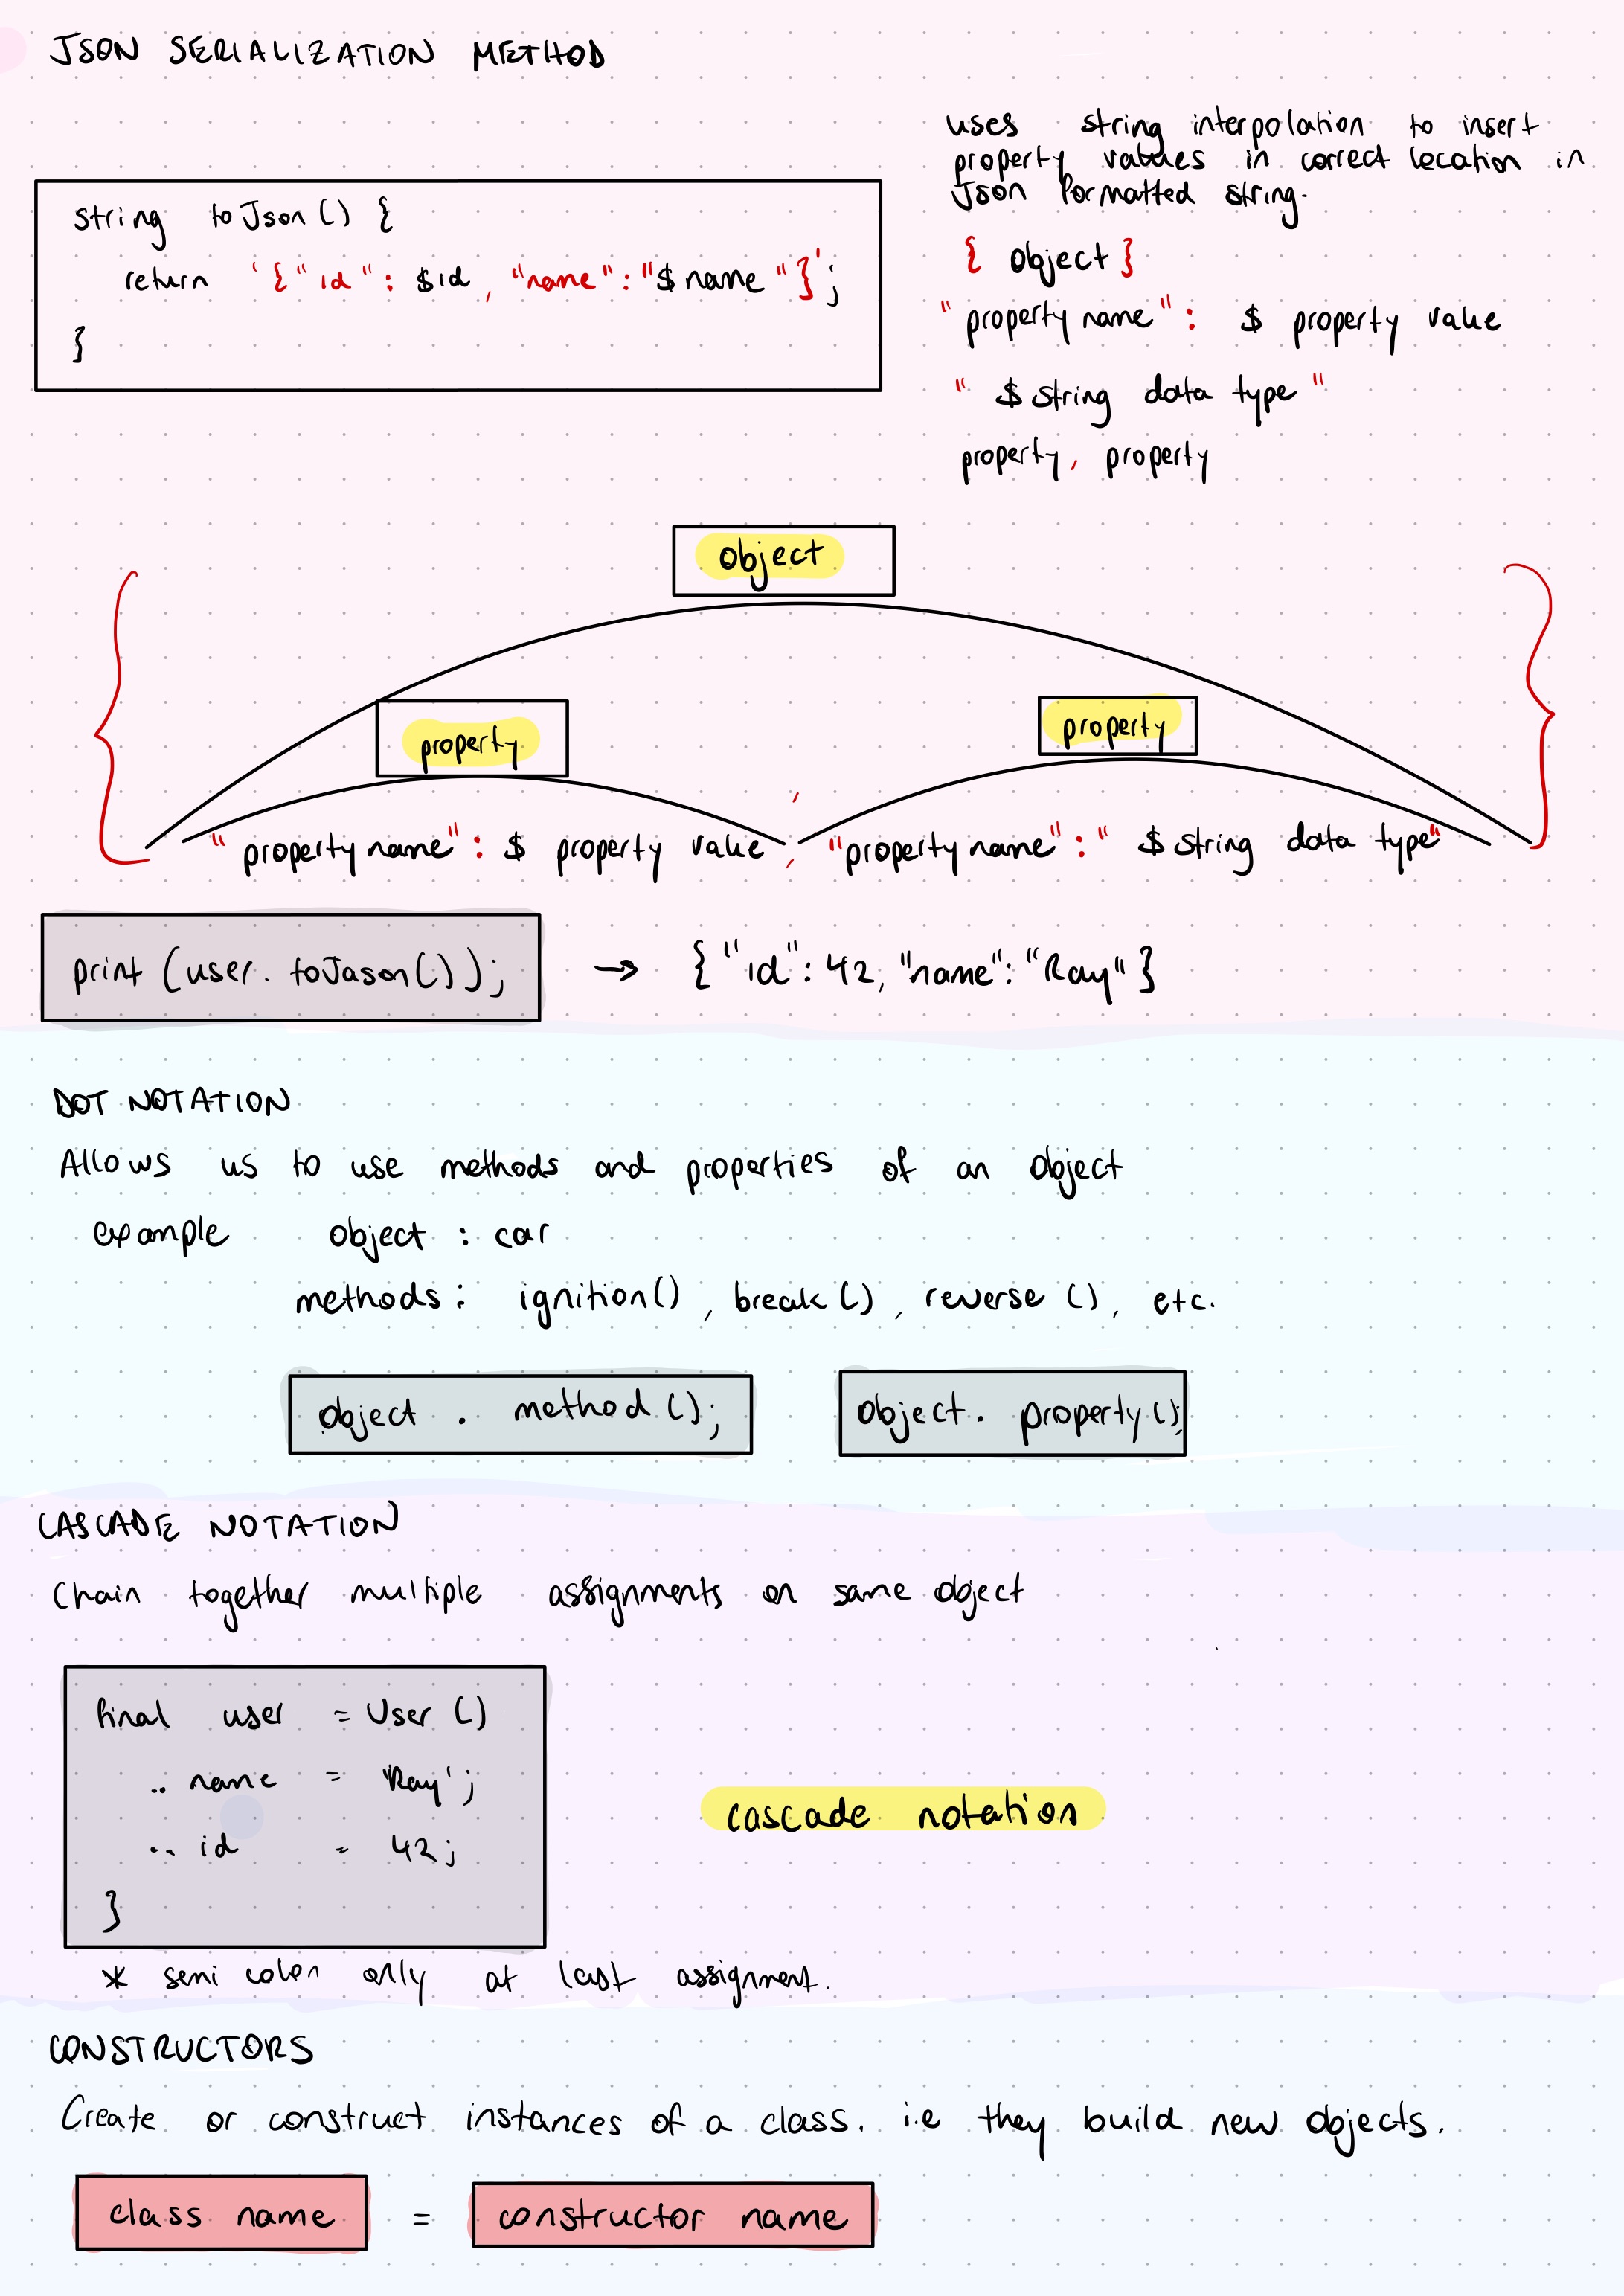 JSON SERIALIZATION METHOD
uses string interpolation to insert
property values in correct location in
Json formatted string.
string toJson() {
return '{"id": $id, "name":"$name"}';
}
{ object }
"property name": $ property value
"$ string data type"
property, property
object
property
property
{ "property name": $ property value, "property name":"$ string data type" }
print (user.toJason()); → {"id": 42, "name": "Ray"}
DOT NOTATION
Allows us to use methods and properties of an object
example object : car
methods: ignition(), break(), reverse(), etc.
object . method(); object. property();
CASCADE NOTATION
Chain together multiple assignments on same object
final user = User()
.. name = 'Ray';
.. id = 42;
}
cascade notation
* semi colon only at last assignment.
CONSTRUCTORS
Create or construct instances of a class. i.e they build new objects.
class name = constructor name